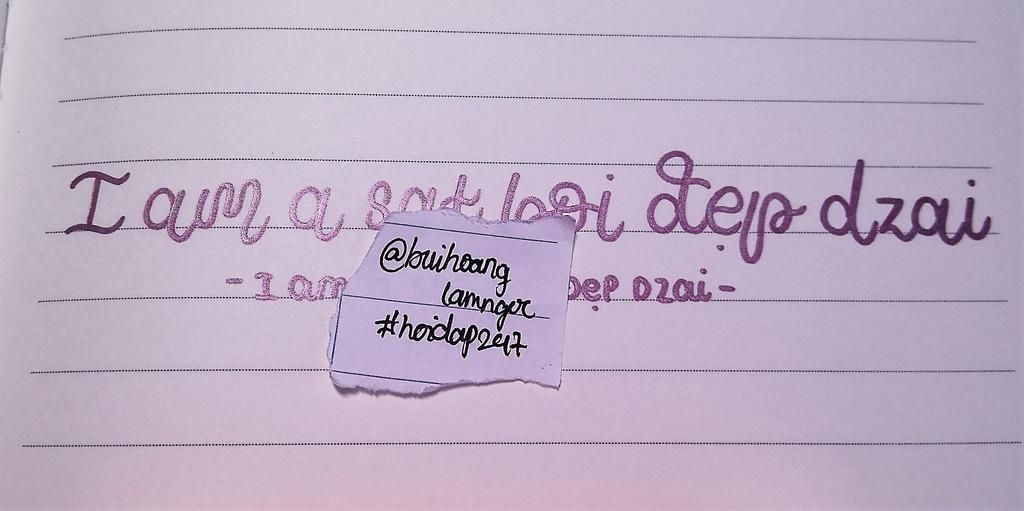 I am a sat boi đẹp dzai
- I am đẹp dzai -
@buihoang
lamngoc
#hoidap247